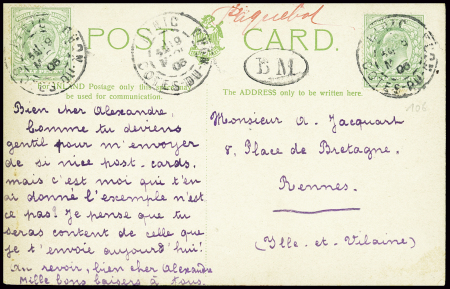 Piguebol
POST CARD.
BINIC
COTES-DU-NORD
9
08
B M
For INLAND Postage only this
be used for communication.
The ADDRESS only to be written here.
Bien cher Alexandre,
Comme tu deviens
gentil pour m'envoyer
de si nice post-cards,
mais c'est moi qui t'en
ai donné l'exemple n'est
ce pas? Je pense que tu
seras content de celle que
je t'envoie aujourd'hui!
Au revoir, bien cher Alexandre
Mille bons baisers à tous.
Monsieur A. Jacquart
8, Place de Bretagne.
Rennes.
(Ille-et-Vilaine)